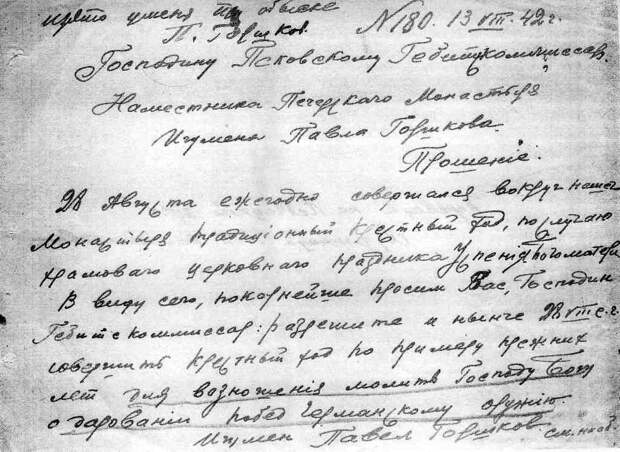 П. Горшков. №180. 13 VIII. 42 г.
Господину Псковскому Гебитскомиссару.
Наместника Печерскаго Монастыря
Игумена Павла Горшкова.
Прошение.
28 Августа ежегодно совершался вокруг нашего
Монастыря традиціонный крестный ход, по случаю
храмоваго церковнаго праздника Успенія Богоматери
В виду сего, покорнейше просим Вас, Господин
Гебитскоммиссар: разрешите и нынче 28 VIII с. г.
совершить крестный ход по примеру прежних
лет для возношенія молитв Господу Богу
о даровании побед Германскому оружию.
Игумен Павел Горшков см. на об.